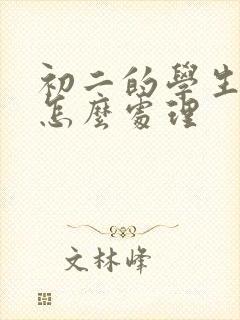 初二的學生
怎麼處理
文林峰